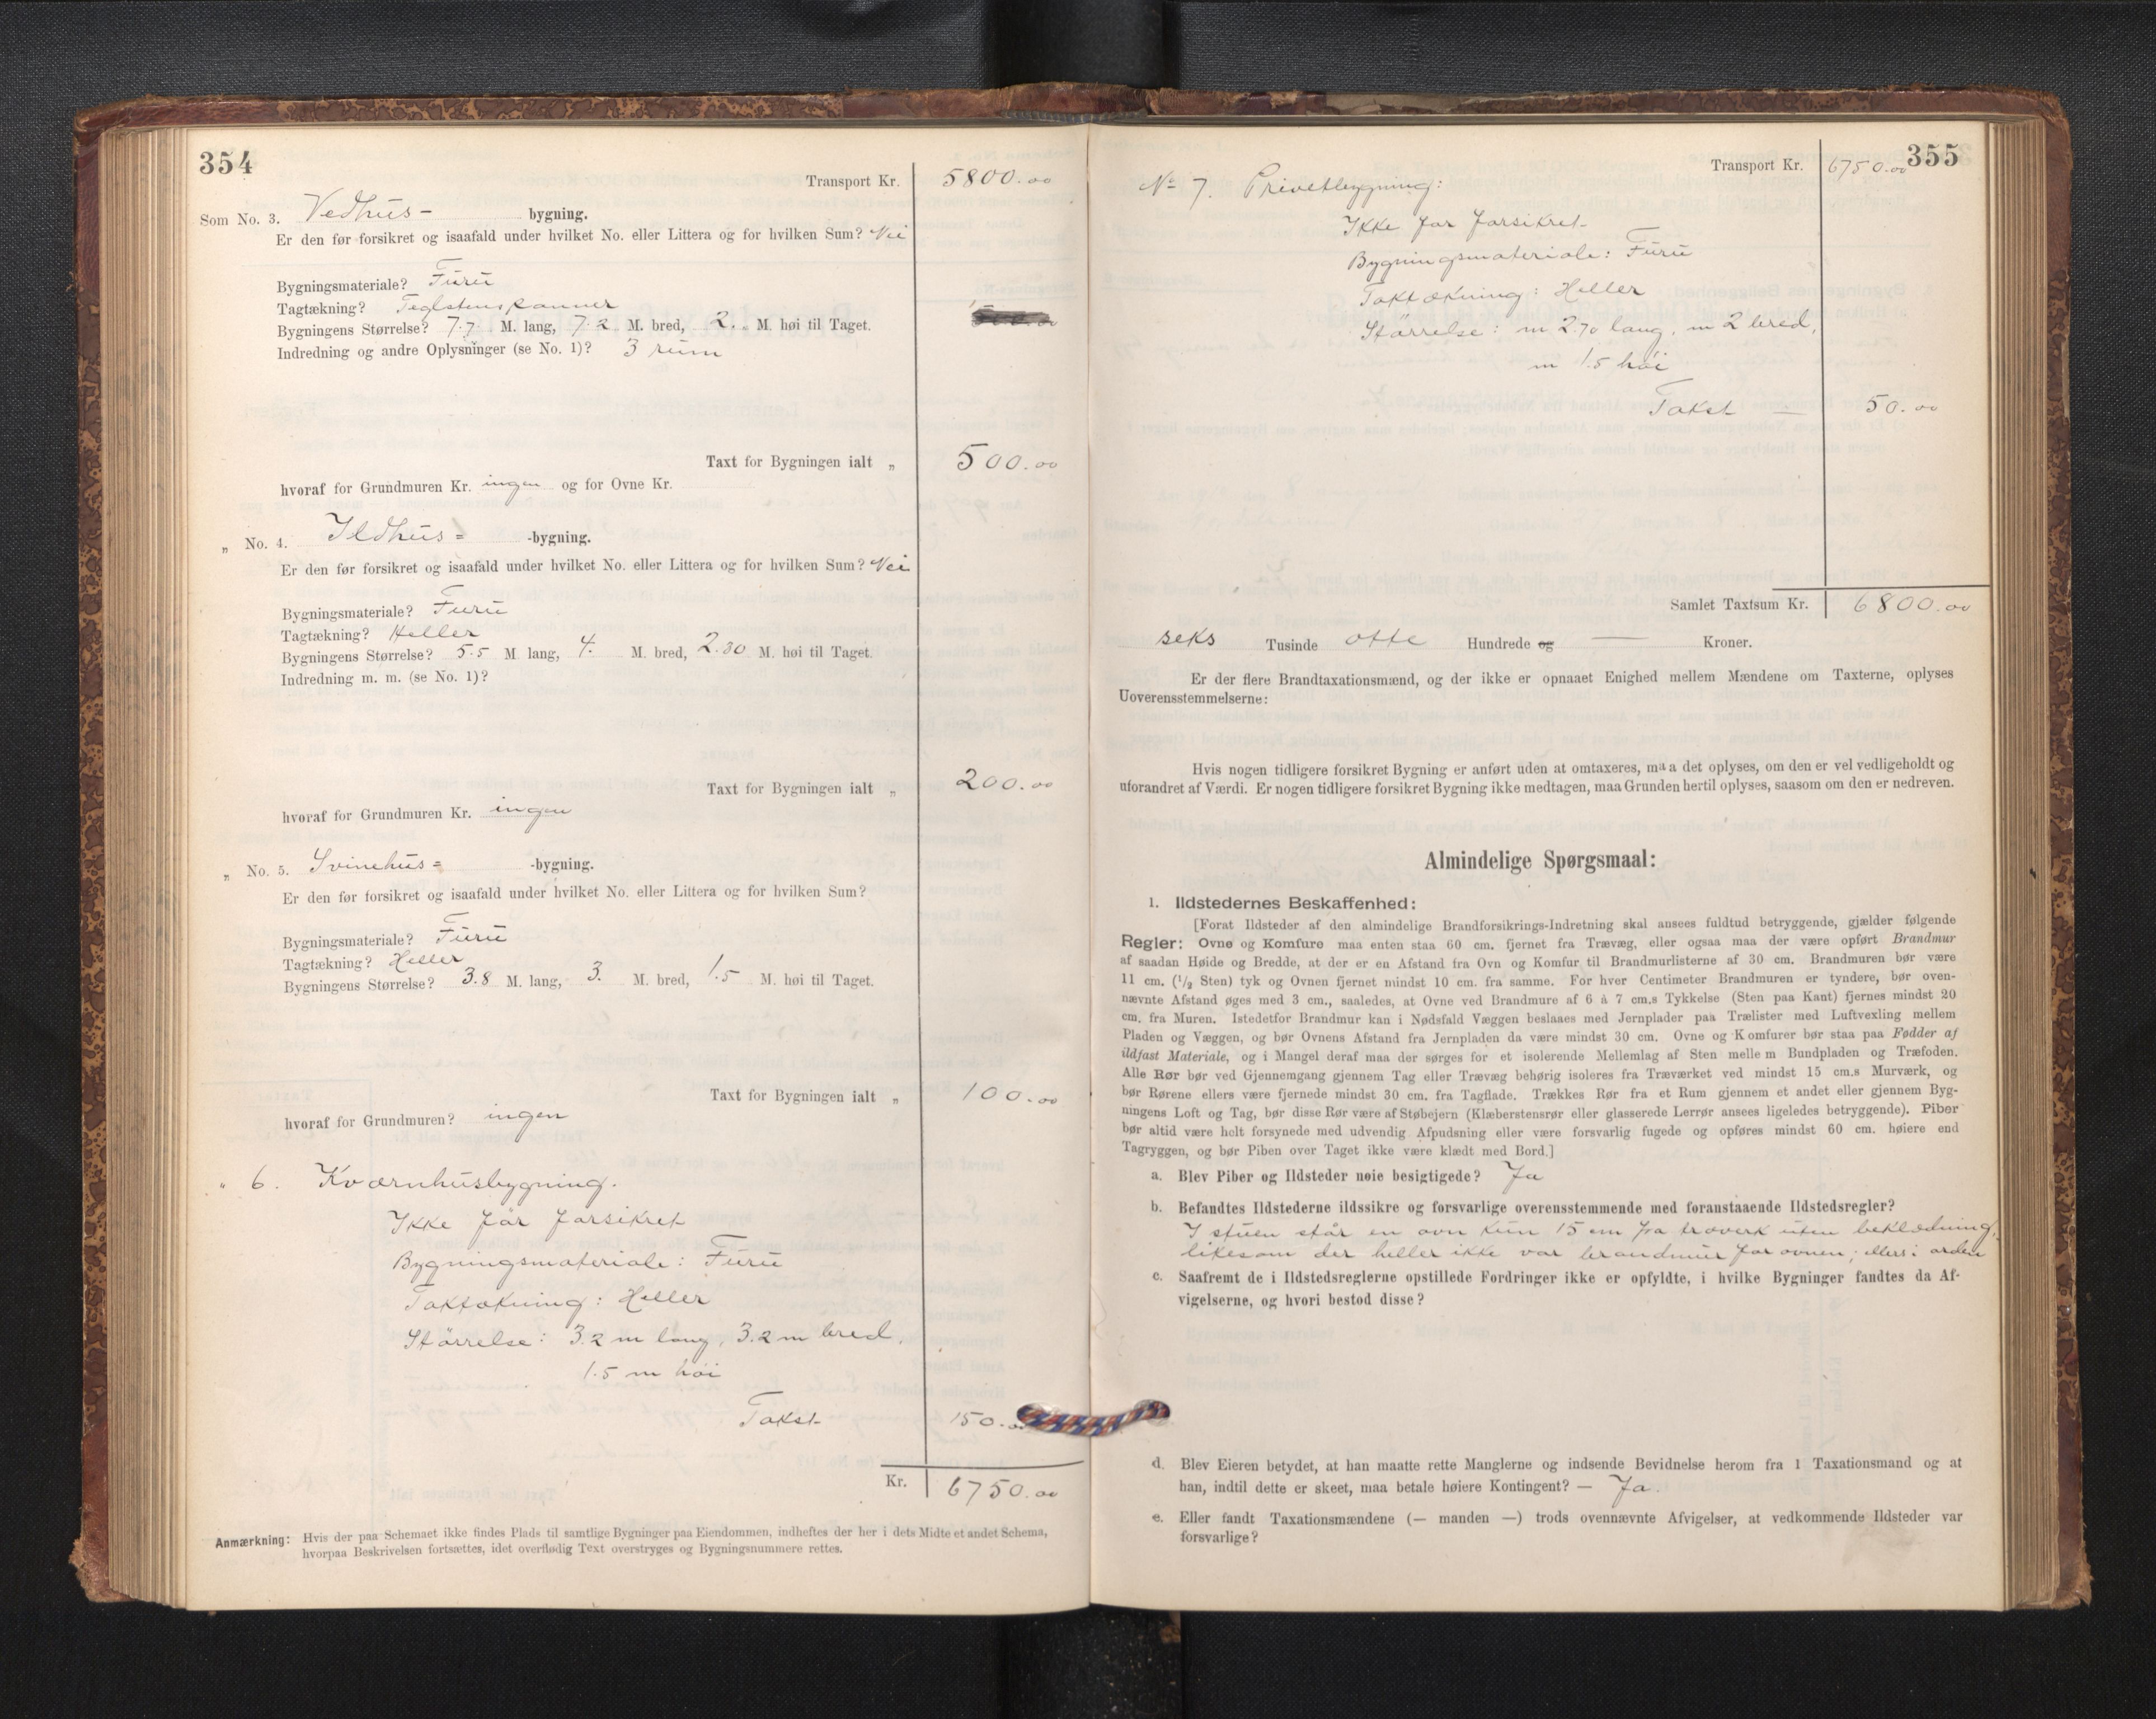 354
Transport Kr. 5800.00
Som No. 3. Vedhus- bygning.
Er den før forsikret og isaafald under hvilket No. eller Littera og for hvilken Sum? Nei
Bygningsmateriale? Furu
Tagtækning? Teglstenspanner
Bygningens Størrelse? 7.7. M. lang, 7.2 M. bred, 2. M. høi til Taget.
Indredning og andre Oplysninger (se No. 1)? 3 rum
Taxt for Bygningen ialt „ 500.00
hvoraf for Grundmuren Kr. ingen og for Ovne Kr.
„ No. 4. Ildhus= -bygning.
Er den før forsikret og isaafald under hvilket No. eller Littera og for hvilken Sum? Nei
Bygningsmateriale? Furu
Tagtækning? Heller
Bygningens Størrelse? 5.5 M lang, 4. M. bred, 2.30 M. høi til Taget.
Indredning m. m. (se No. 1)?
Taxt for Bygningen ialt „ 200.00
hvoraf for Grundmuren Kr. ingen
„ No. 5. Svinehus= -bygning.
Er den før forsikret og isaafald under hvilket No. eller Littera og for hvilken Sum?
Bygningsmateriale? Furu
Tagtækning? Heller
Bygningens Størrelse? 3.8 M. lang, 3. M. bred, 1.5 M. høi til Taget.
Taxt for Bygningen ialt „ 100.00
hvoraf for Grundmuren? ingen
„ 6. Kværnhusbygning.
Ikke før forsikret
Bygningsmateriale: Furu
Taktækning: Heller
Större­lse: 3.2 m lang, 3.2 m bred,
1.5 m høi
Takst 150.00
Kr. 6750.00
Anmærkning: Hvis der paa Schemaet ikke findes Plads til samtlige Bygninger paa Eiendommen, indheftes der her i dets Midte et andet Schema,
hvorpaa Beskrivelsen fortsættes, idet overflødig Text overstryges og Bygningsnummere rettes.
355
Transport Kr. 6750.00
No 7. Privetbygning:
Ikke før forsikret
Bygningsmateriale: Furu
Taktækning: Heller
Størrelse: m 2.70 lang, m 2 bred,
m 1.5 høi
Takst — 50.00
Samlet Taxtsum Kr. 6800.00
seks Tusinde otte Hundrede og — Kroner.
Er der flere Brandtaxationsmænd, og der ikke er opnaaet Enighed mellem Mændene om Taxterne, oplyses
Uoverensstemmelserne:
Hvis nogen tidligere forsikret Bygning er anført uden at omtaxeres, maa det oplyses, om den er vel vedligeholdt og
uforandret af Værdi. Er nogen tidligere forsikret Bygning ikke medtagen, maa Grunden hertil oplyses, saasom om den er nedreven.
Almindelige Spørgsmaal:
1. Ildstedernes Beskaffenhed:
[Forat Ildsteder af den almindelige Brandforsikrings-Indretning skal ansees fuldtud betryggende, gjælder følgende
Regler: Ovne og Komfure maa enten staa 60 cm. fjernet fra Trævæg, eller ogsaa maa der være opført Brandmur
af saadan Høide og Bredde, at der er en Afstand fra Ovn og Komfur til Brandmurlisterne af 30 cm. Brandmuren bør være
11 cm. (1/2 Sten) tyk og Ovnen fjernet mindst 10 cm. fra samme. For hver Centimeter Brandmuren er tyndere, bør oven-
nævnte Afstand øges med 3 cm., saaledes, at Ovne ved Brandmure af 6 à 7 cm.s Tykkelse (Sten paa Kant) fjernes mindst 20
cm. fra Muren. Istedetfor Brandmur kan i Nødsfald Væggen beslaaes med Jernplader paa Trælister med Luftvexling mellem
Pladen og Væggen, og bør Ovnens Afstand fra Jernpladen da være mindst 30 cm. Ovne og Komfurer bør staa paa Fødder af
ildfast Materiale, og i Mangel deraf maa der sørges for et isolerende Mellemlag af Sten mellem Bundpladen og Træfoden.
Alle Rør bør ved Gjennemgang gjennem Tag eller Trævæg behørig isoleres fra Træværket ved mindst 15 cm.s Murværk, og
bør Rørene ellers være fjernede mindst 30 cm. fra Tagflade. Trækkes Rør fra et Rum gjennem et andet eller gjennem Byg-
ningens Loft og Tag, bør disse Rør være af Støbejern (Klæberstensrør eller glasserede Lerrør ansees ligeledes betryggende). Piber
bør altid være helt forsynede med udvendig Afpudsning eller være forsvarlig fugede og opføres mindst 60 cm. høiere end
Tagryggen, og bør Piben over Taget ikke være klædt med Bord.]
a. Blev Piber og Ildsteder nøie besigtigede? Ja
b. Befandtes Ildstederne ildssikre og forsvarlige overensstemmende med foranstaaende Ildstedsregler?
I stuen står en ovn kun 15 cm fra træverk uten beklædning,
likesom der heller ikke var brandmur for ovnen; ellers i orden
c. Saafremt de i Ildstedsreglerne opstillede Fordringer ikke er opfyldte, i hvilke Bygninger fandtes da Af-
vigelserne, og hvori bestod disse?
d. Blev Eieren betydet, at han maatte rette Manglerne og indsende Bevidnelse herom fra 1 Taxationsmand og at
han, indtil dette er skeet, maa betale høiere Kontingent? — Ja.
e. Eller fandt Taxationsmændene (— manden —) trods ovennævnte Afvigelser, at vedkommende Ildsteder var
forsvarlige?